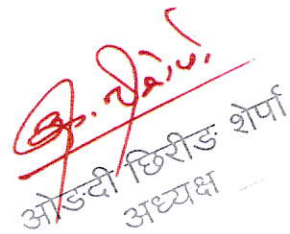 ओङदी छिरीङ शेर्पा
अध्यक्ष